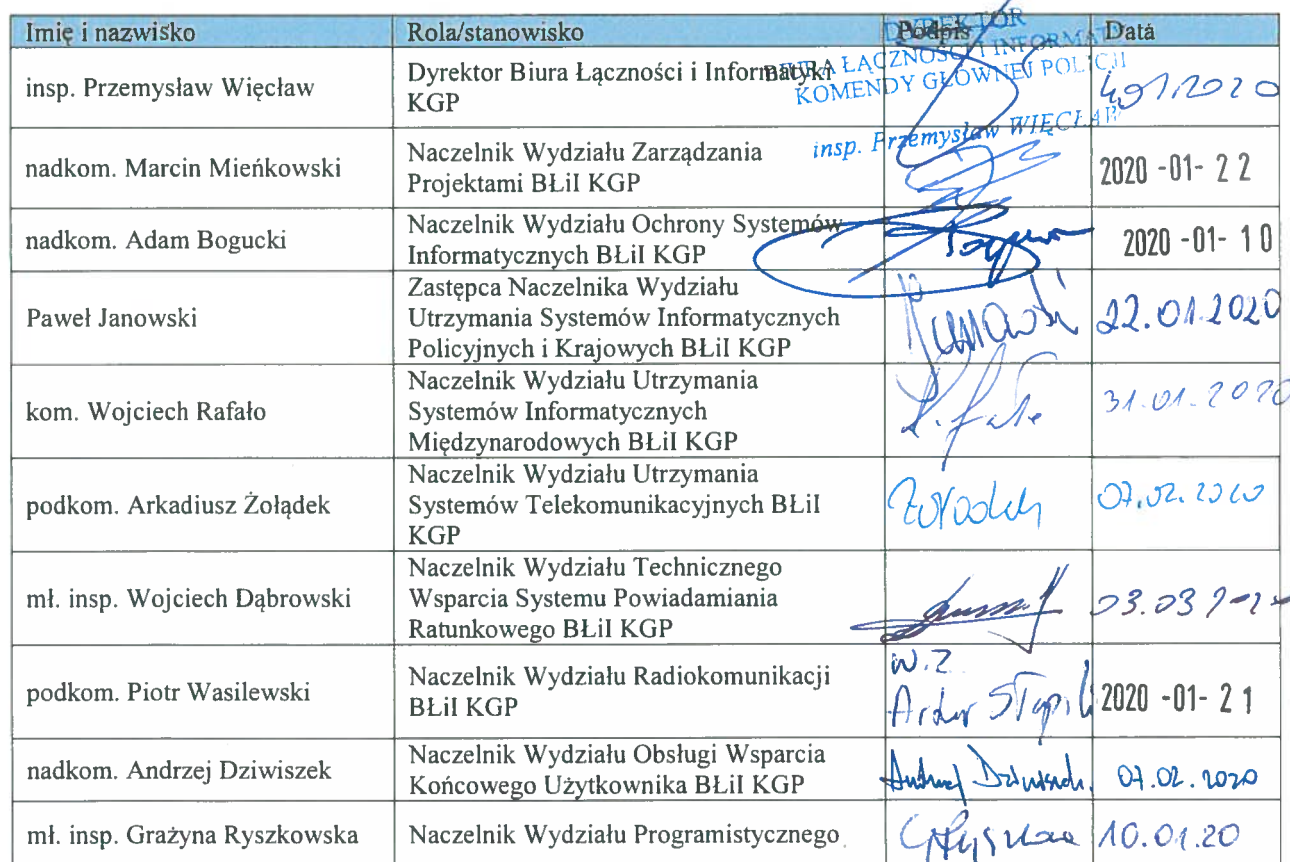 Imię i nazwisko Rola/stanowisko Podpis Data
DYREKTOR
BIURA ŁĄCZNOŚCI I INFORMATYKI
KOMENDY GŁÓWNEJ POLICJI
insp. Przemysław WIĘCŁAW
insp. Przemysław Więcław
Dyrektor Biura Łączności i Informatyki
KGP
nadkom. Marcin Mieńkowski
Naczelnik Wydziału Zarządzania
Projektami BŁiI KGP
2020 -01- 22
nadkom. Adam Bogucki
Naczelnik Wydziału Ochrony Systemów
Informatycznych BŁiI KGP
2020 -01- 10
Paweł Janowski
Zastępca Naczelnika Wydziału
Utrzymania Systemów Informatycznych
Policyjnych i Krajowych BŁiI KGP
Janowski
22.01.2020
kom. Wojciech Rafało
Naczelnik Wydziału Utrzymania
Systemów Informatycznych
Międzynarodowych BŁiI KGP
31.01.2020
podkom. Arkadiusz Żołądek
Naczelnik Wydziału Utrzymania
Systemów Telekomunikacyjnych BŁiI
KGP
Żołądek
07.02.2020
mł. insp. Wojciech Dąbrowski
Naczelnik Wydziału Technicznego
Wsparcia Systemu Powiadamiania
Ratunkowego BŁiI KGP
03.03
podkom. Piotr Wasilewski
Naczelnik Wydziału Radiokomunikacji
BŁiI KGP
w.z.
Artur
2020 -01- 21
nadkom. Andrzej Dziwiszek
Naczelnik Wydziału Obsługi Wsparcia
Końcowego Użytkownika BŁiI KGP
Andrzej Dziwiszek
07.02.2020
mł. insp. Grażyna Ryszkowska
Naczelnik Wydziału Programistycznego
10.01.20